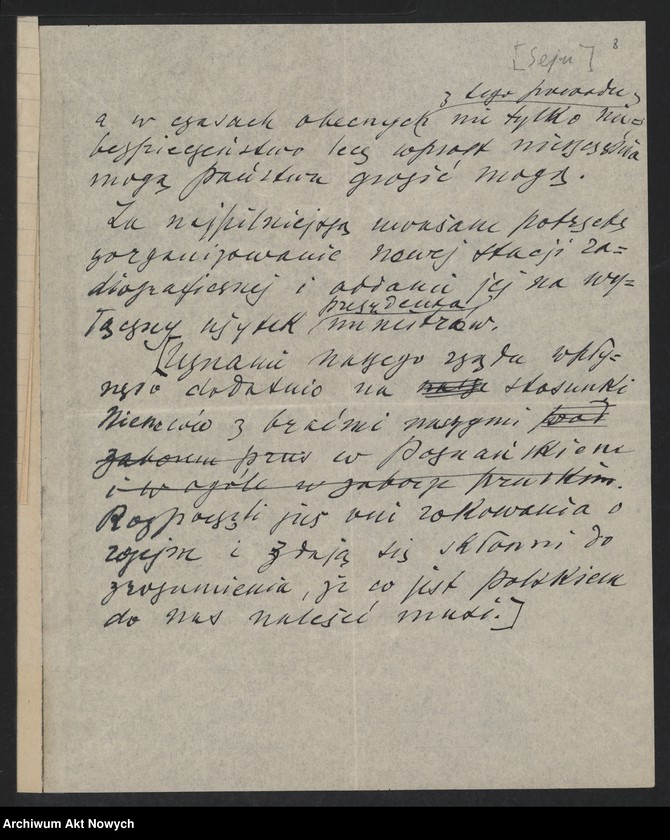 8
[Sejm]
z tego powodu
a w czasach obecnych nie tylko nie=
bezpieczeństwo lecz wprost nieszczęścia
mogą państwu grozić mogą.
Za najpilniejszą uważam potrzebę
zorganizowanie nowej stacji ra=
diograficznej i oddanie jej na wy=
łączny użytek prezydenta ministrów.
[Uznanie naszego rządu wpły=
nęło dodatnio na nasze stosunki
Niemców z braćmi naszymi pod
zaborem prus w Poznańskiem
i w ogóle w zaborze pruskim.
Rozpoczęli już oni rokowania o
rozejm i zdają się skłonni do
zrozumienia, że co jest polskiem
do nas należeć musi.]
Archiwum Akt Nowych